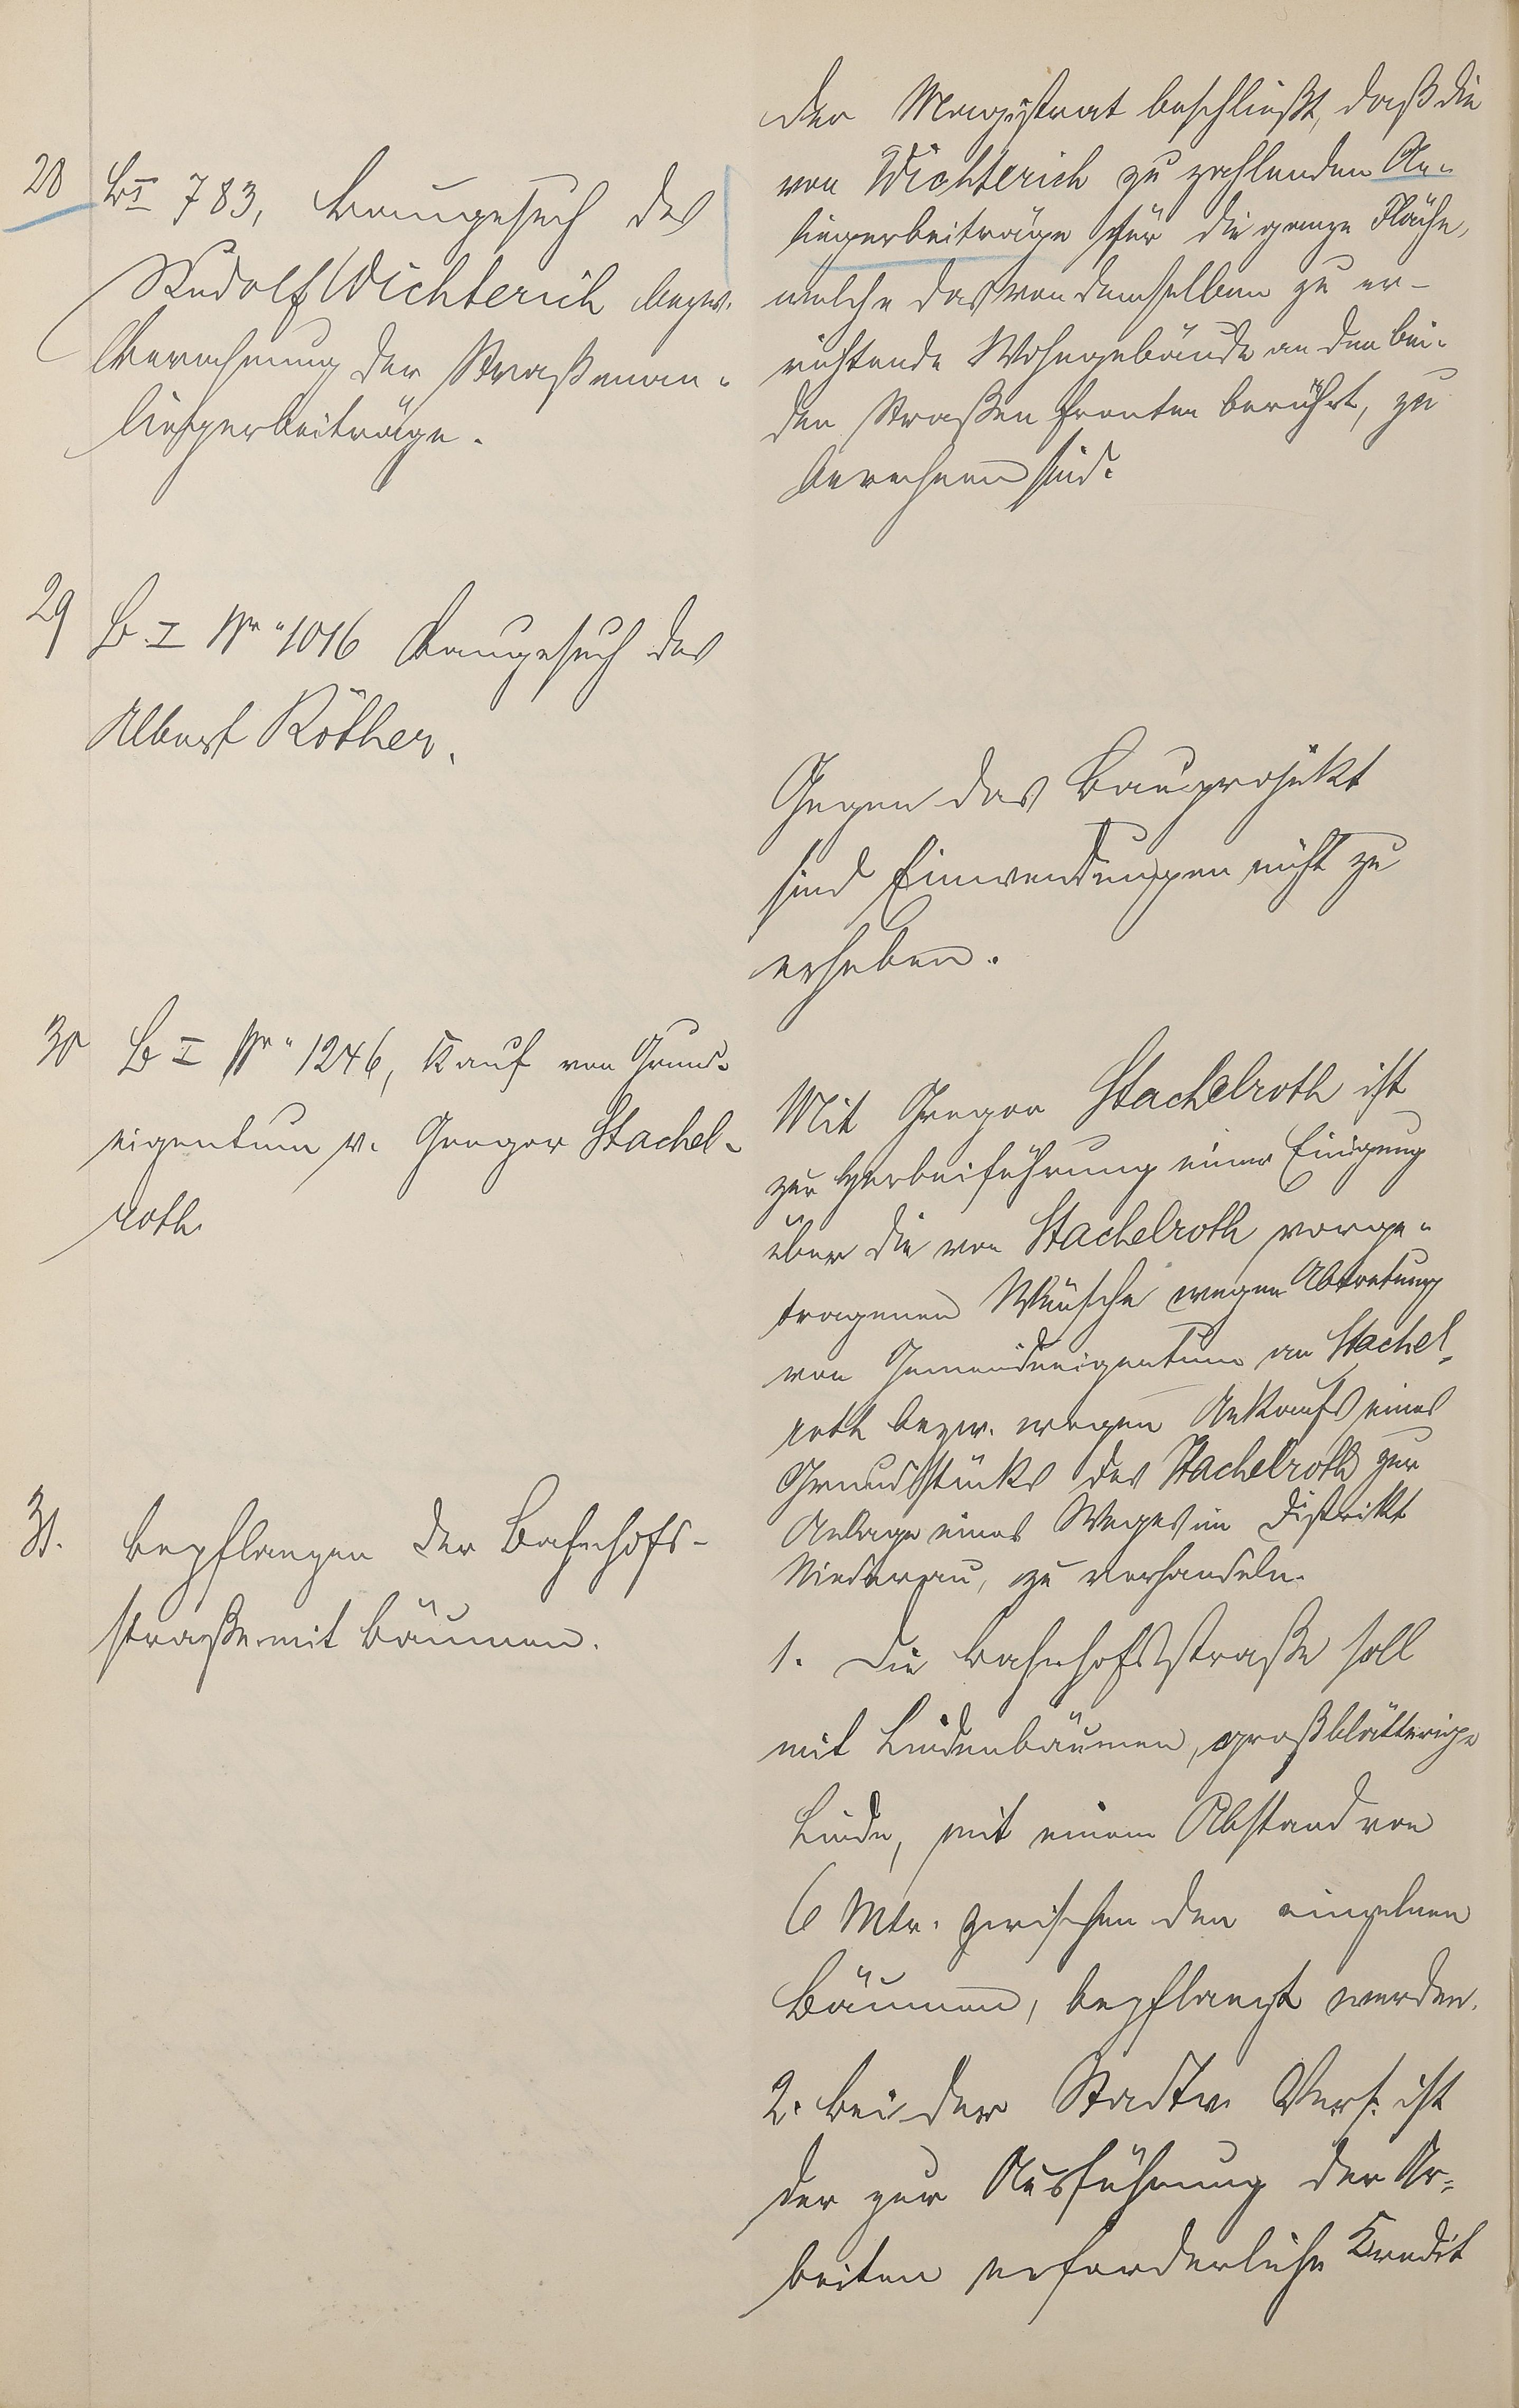 28 B I 783, Baugesuch des
Rudolf Wichterich bezw.
Berechnung der Straßenan-
liegerbeiträge.
Der Magistrat beschließt, daß die
von Wichterich zu zahlenden An-
liegerbeiträge für die ganze Fläche,
welche das von demselben zu er-
richtende Wohngebäude an den bei-
den Straßenfronten berührt, zu
berechnen sind.
29 B. I Nr. 1016 Baugesuch des
Albert Röther.
Gegen das Bauprojekt
sind Einwendungen nicht zu
erheben.
30 B I Nr. 1246, Kauf von Grund-
eigentum v. Gregor Stachel-
roth.
Mit Gregor Stachelroth ist
zur Herbeiführung einer Einigung
über die von Stachelroth vorge-
tragenen Wünsche wegen Abtretung
von Gemeindeeigentum an Stachel-
roth bezw. wegen Ankaufs eines
Grundstücks des Stachelroth zur
Anlage eines Weges im Distrikt
Niederau, zu verhandeln.
31. Bepflanzen der Bahnhofs-
straße mit Bäumen.
1. Die Bahnhofsstraße soll
mit Lindenbäumen, großblätterige
Linde, mit einem Abstand von
6 Mtr. zwischen den einzelnen
Bäumen, bepflanzt werden.
2. Bei der Stadtv. Vers. ist
der zur Ausführung der Ar-
beiten erforderliche Kredit